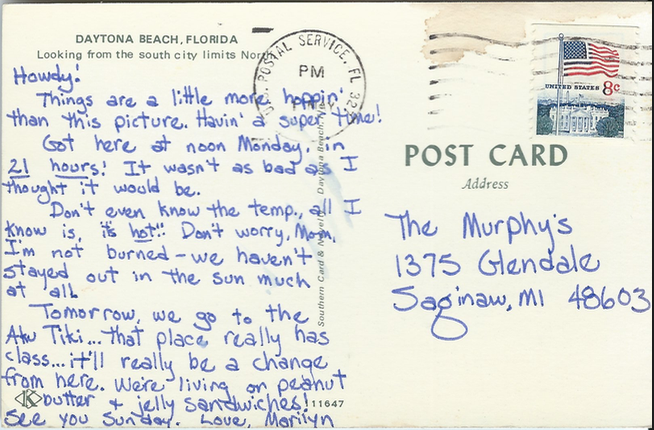 DAYTONA BEACH, FLORIDA
Looking from the south city limits North
Howdy!
Things are a little more hoppin'
than this picture. Havin' a super time!
Got here at noon Monday, in
21 hours! It wasn't as bad as I
thought it would be.
Don't even know the temp., all I
know is, it's hot!! Don't worry, Mom,
I'm not burned - we haven't
stayed out in the sun much
at all.
Tomorrow, we go to the
Aku Tiki... that place really has
class... it'll really be a change
from here. We're living on peanut
butter & jelly sandwiches!
See you Sunday. Love, Marilyn
K
11647
Southern Card & Novelty, Daytona Beach,
POSTAL SERVICE, FL
PM
UNITED STATES 8c
POST CARD
Address
The Murphy's
1375 Glendale
Saginaw, MI 48603